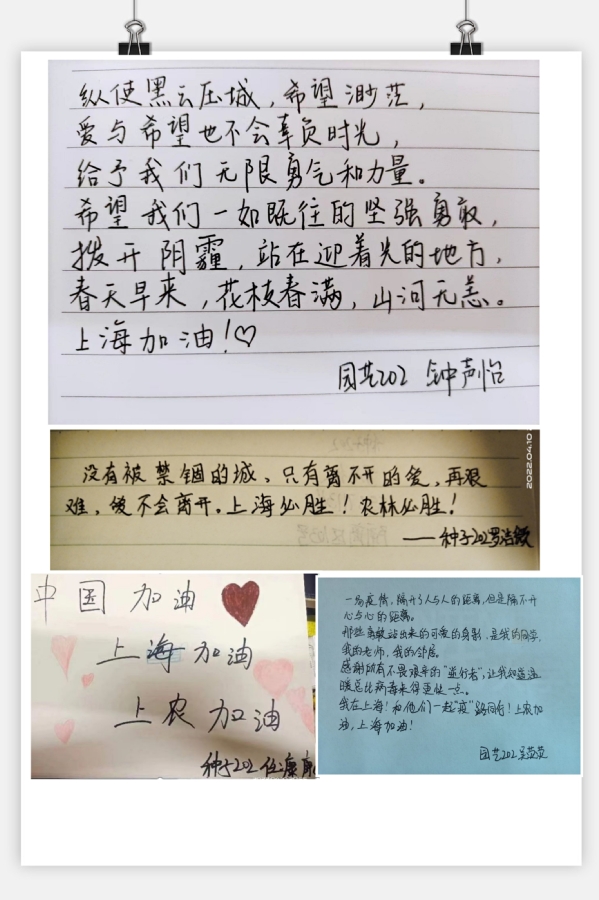 纵使黑云压城，希望渺茫，
爱与希望也不会辜负时光，
给予我们无限勇气和力量。
希望我们一如既往的坚强勇敢，
拨开阴霾，站在迎着光的地方，
春天早来，花枝春满，山河无恙。
上海加油！♡
园艺202 钟声怡
2022.04.10
没有被禁锢的城、只有离不开的爱，再艰
难，爱不会离开。上海必胜！农林必胜！
——种子202罗浩
中国加油
上海加油
上农加油
种子202 任康
一场疫情，隔开了人与人的距离，但是隔不开
心与心的距离。
那些勇敢站出来的可爱的身影，是我的同学，
我的老师，我的邻居。
感谢所有不畏艰辛的“逆行者”，让我知道温
暖总比病毒来得更快一点。
我在上海！和他们一起“疫”路同行！上农加
油，上海加油！
园艺202 吴荧荧